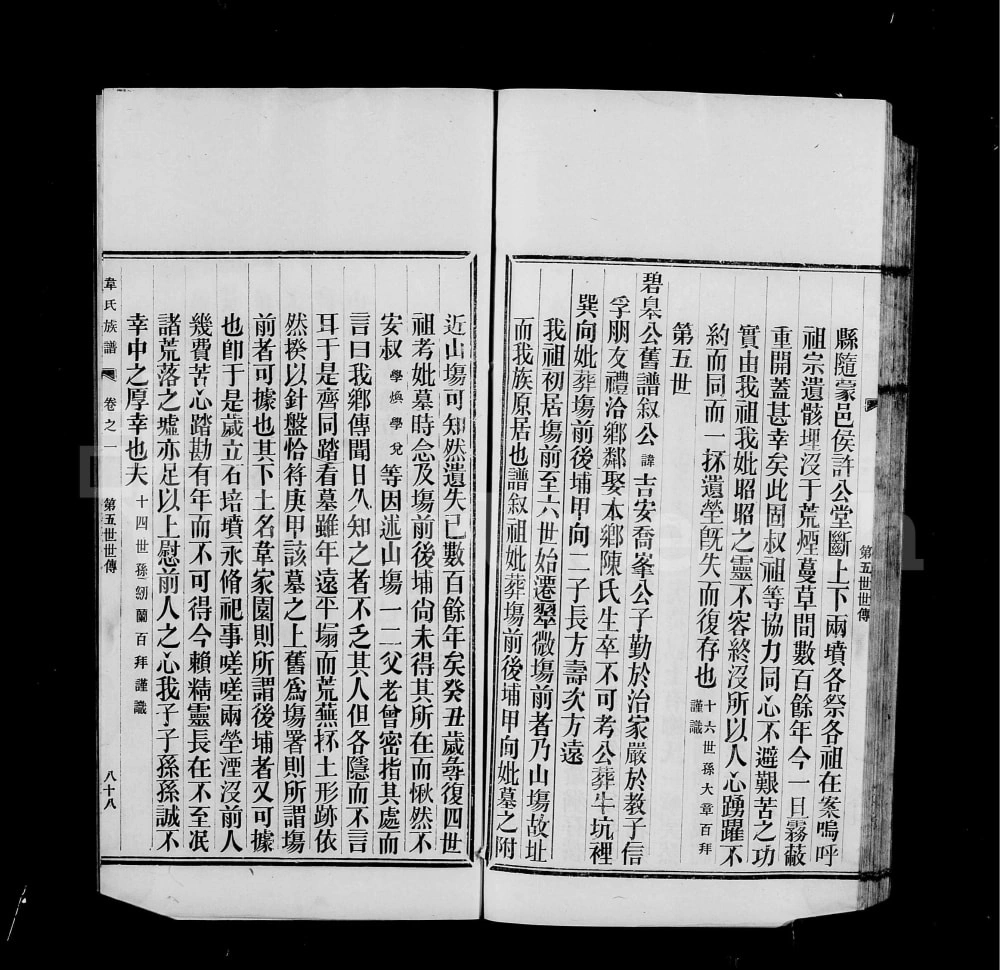 第五世世傳
縣隨蒙邑侯許公堂斷上下兩墳各祭各祖在案嗚呼
祖宗遺骸埋沒于荒煙蔓草間數百餘年今一旦霧蔽
重開蓋甚幸矣此固叔祖等協力同心不避艱苦之功
實由我祖我妣昭昭之靈不容終沒所以人心踴躍不
約而同而一抔遺塋旣失而復存也 十六世孫大章百拜
謹識
第五世
碧臯公舊譜叙公 諱 吉安喬峯公子勤於治家嚴於教子信
孚朋友禮洽鄉鄰娶本鄉陳氏生卒不可考公葬牛坑裡
巽向妣葬塲前後埔甲向二子長方壽次方遠
我祖初居塲前至六世始遷翠微塲前者乃山塲故址
而我族原居也譜叙祖妣葬塲前後埔甲向妣墓之附
近山塲可知然遺失已數百餘年矣癸丑歲彝復四世
祖考妣墓時念及塲前後埔尙未得其所在而愀然不
安叔 學煥學兌 等因述山塲一二父老曾密指其處而
言曰我鄉傳聞日久知之者不乏其人但各隱而不言
耳于是齊同踏看墓雖年遠平塌而荒蕪抔土形跡依
然揆以針盤恰符庚甲該墓之上舊爲塲署則所謂塲
前者可據也其下土名韋家園則所謂後埔者又可據
也卽于是歲立石培墳永脩祀事嗟嗟兩塋湮沒前人
幾費苦心踏勘有年而不可得今賴精靈長在不至泯
諸荒落之墟亦足以上慰前人之心我子子孫孫誠不
幸中之厚幸也夫 十四世孫紉蘭百拜謹識
韋氏族譜 卷之一 第五世世傳 八十八